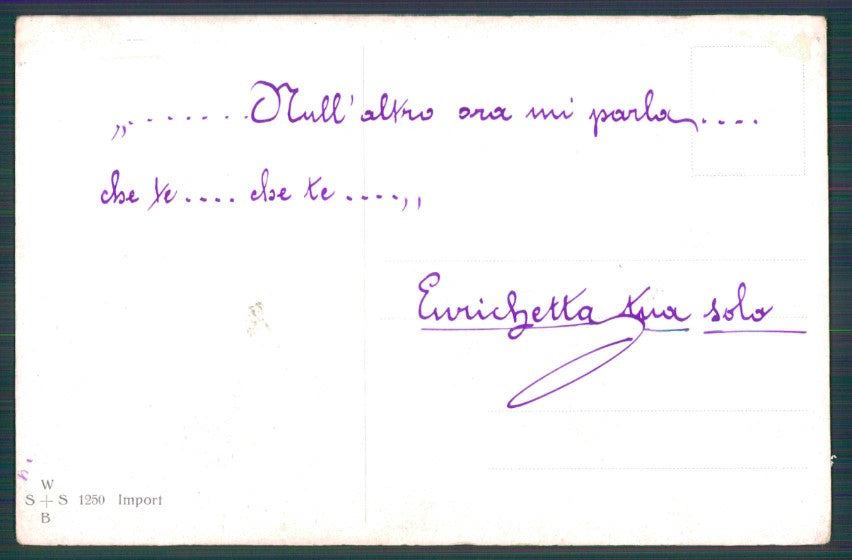 „.......Null'altro ora mi parla....
che te.... che te....,,
Enrichetta tua solo
W
S + S 1250 Import
B